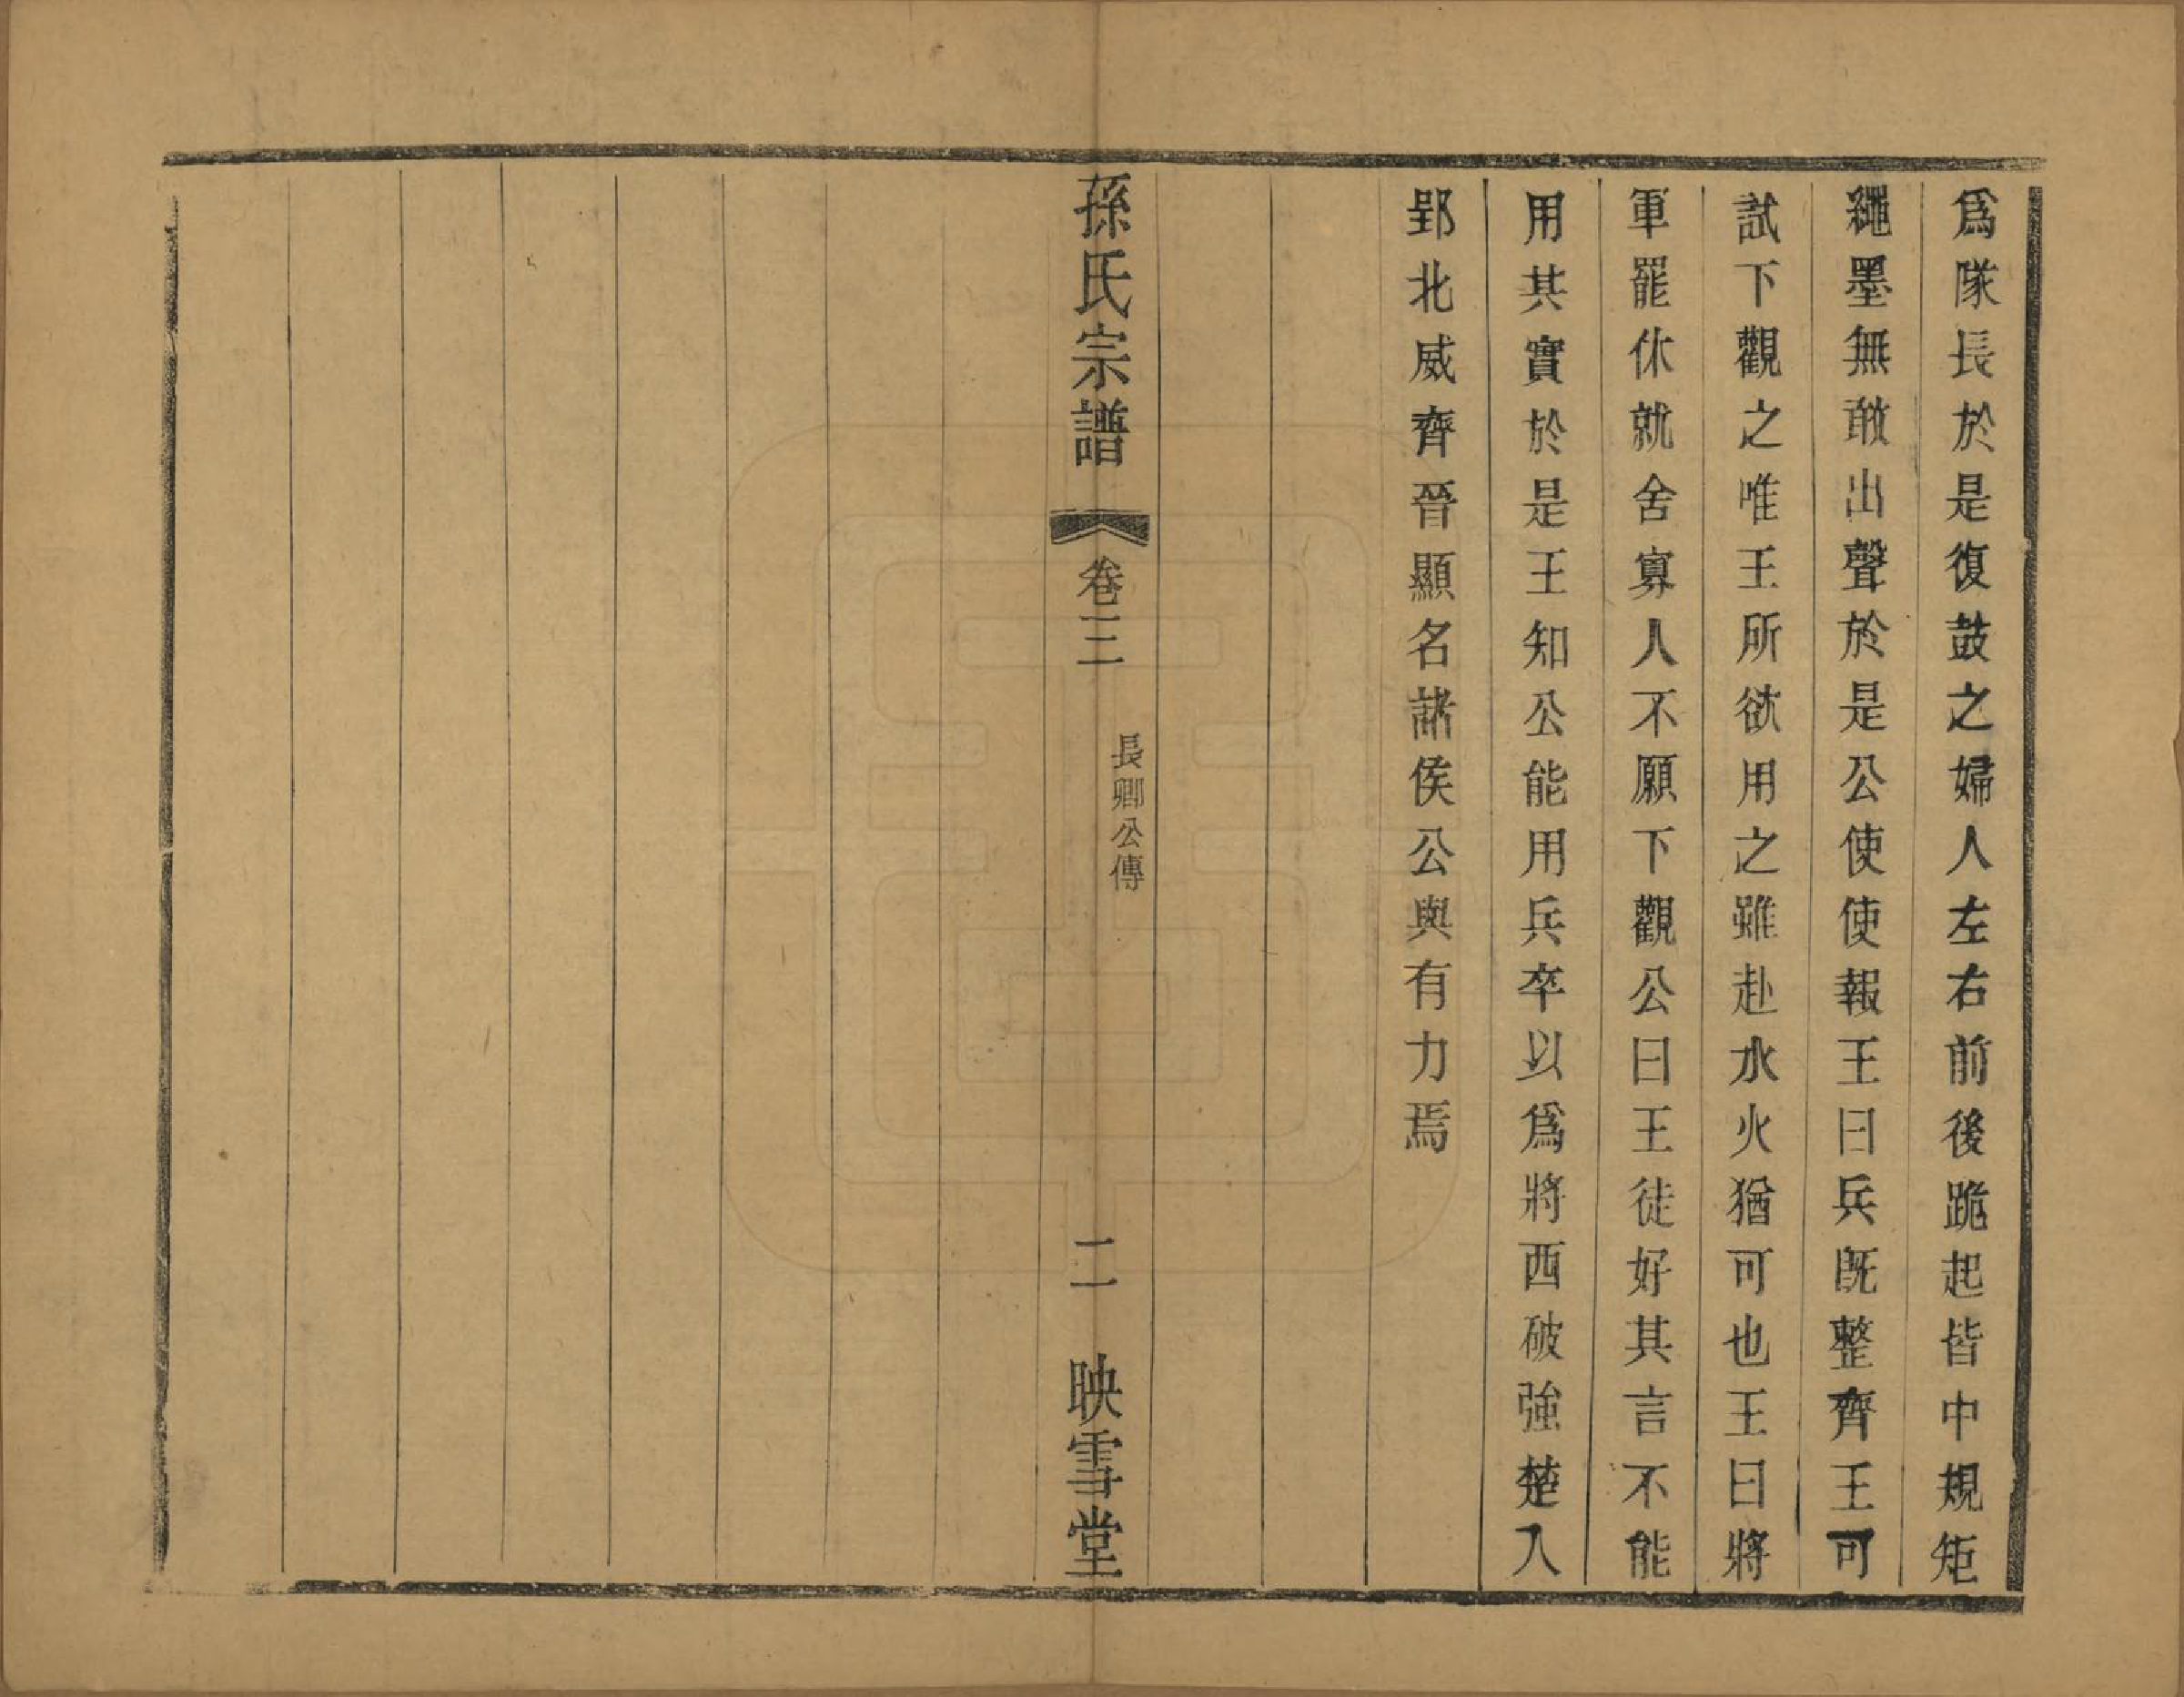 爲隊長於是復鼓之婦人左右前後跪起皆中規矩
繩墨無敢出聲於是公使使報王曰兵既整齊王可
試下觀之唯王所欲用之雖赴水火猶可也王曰將
軍罷休就舍寡人不願下觀公曰王徒好其言不能
用其實於是王知公能用兵卒以爲將西破強楚入
郢北威齊晉顯名諸侯公與有力焉
孫氏宗譜
卷三
長卿公傳
二
映雪堂